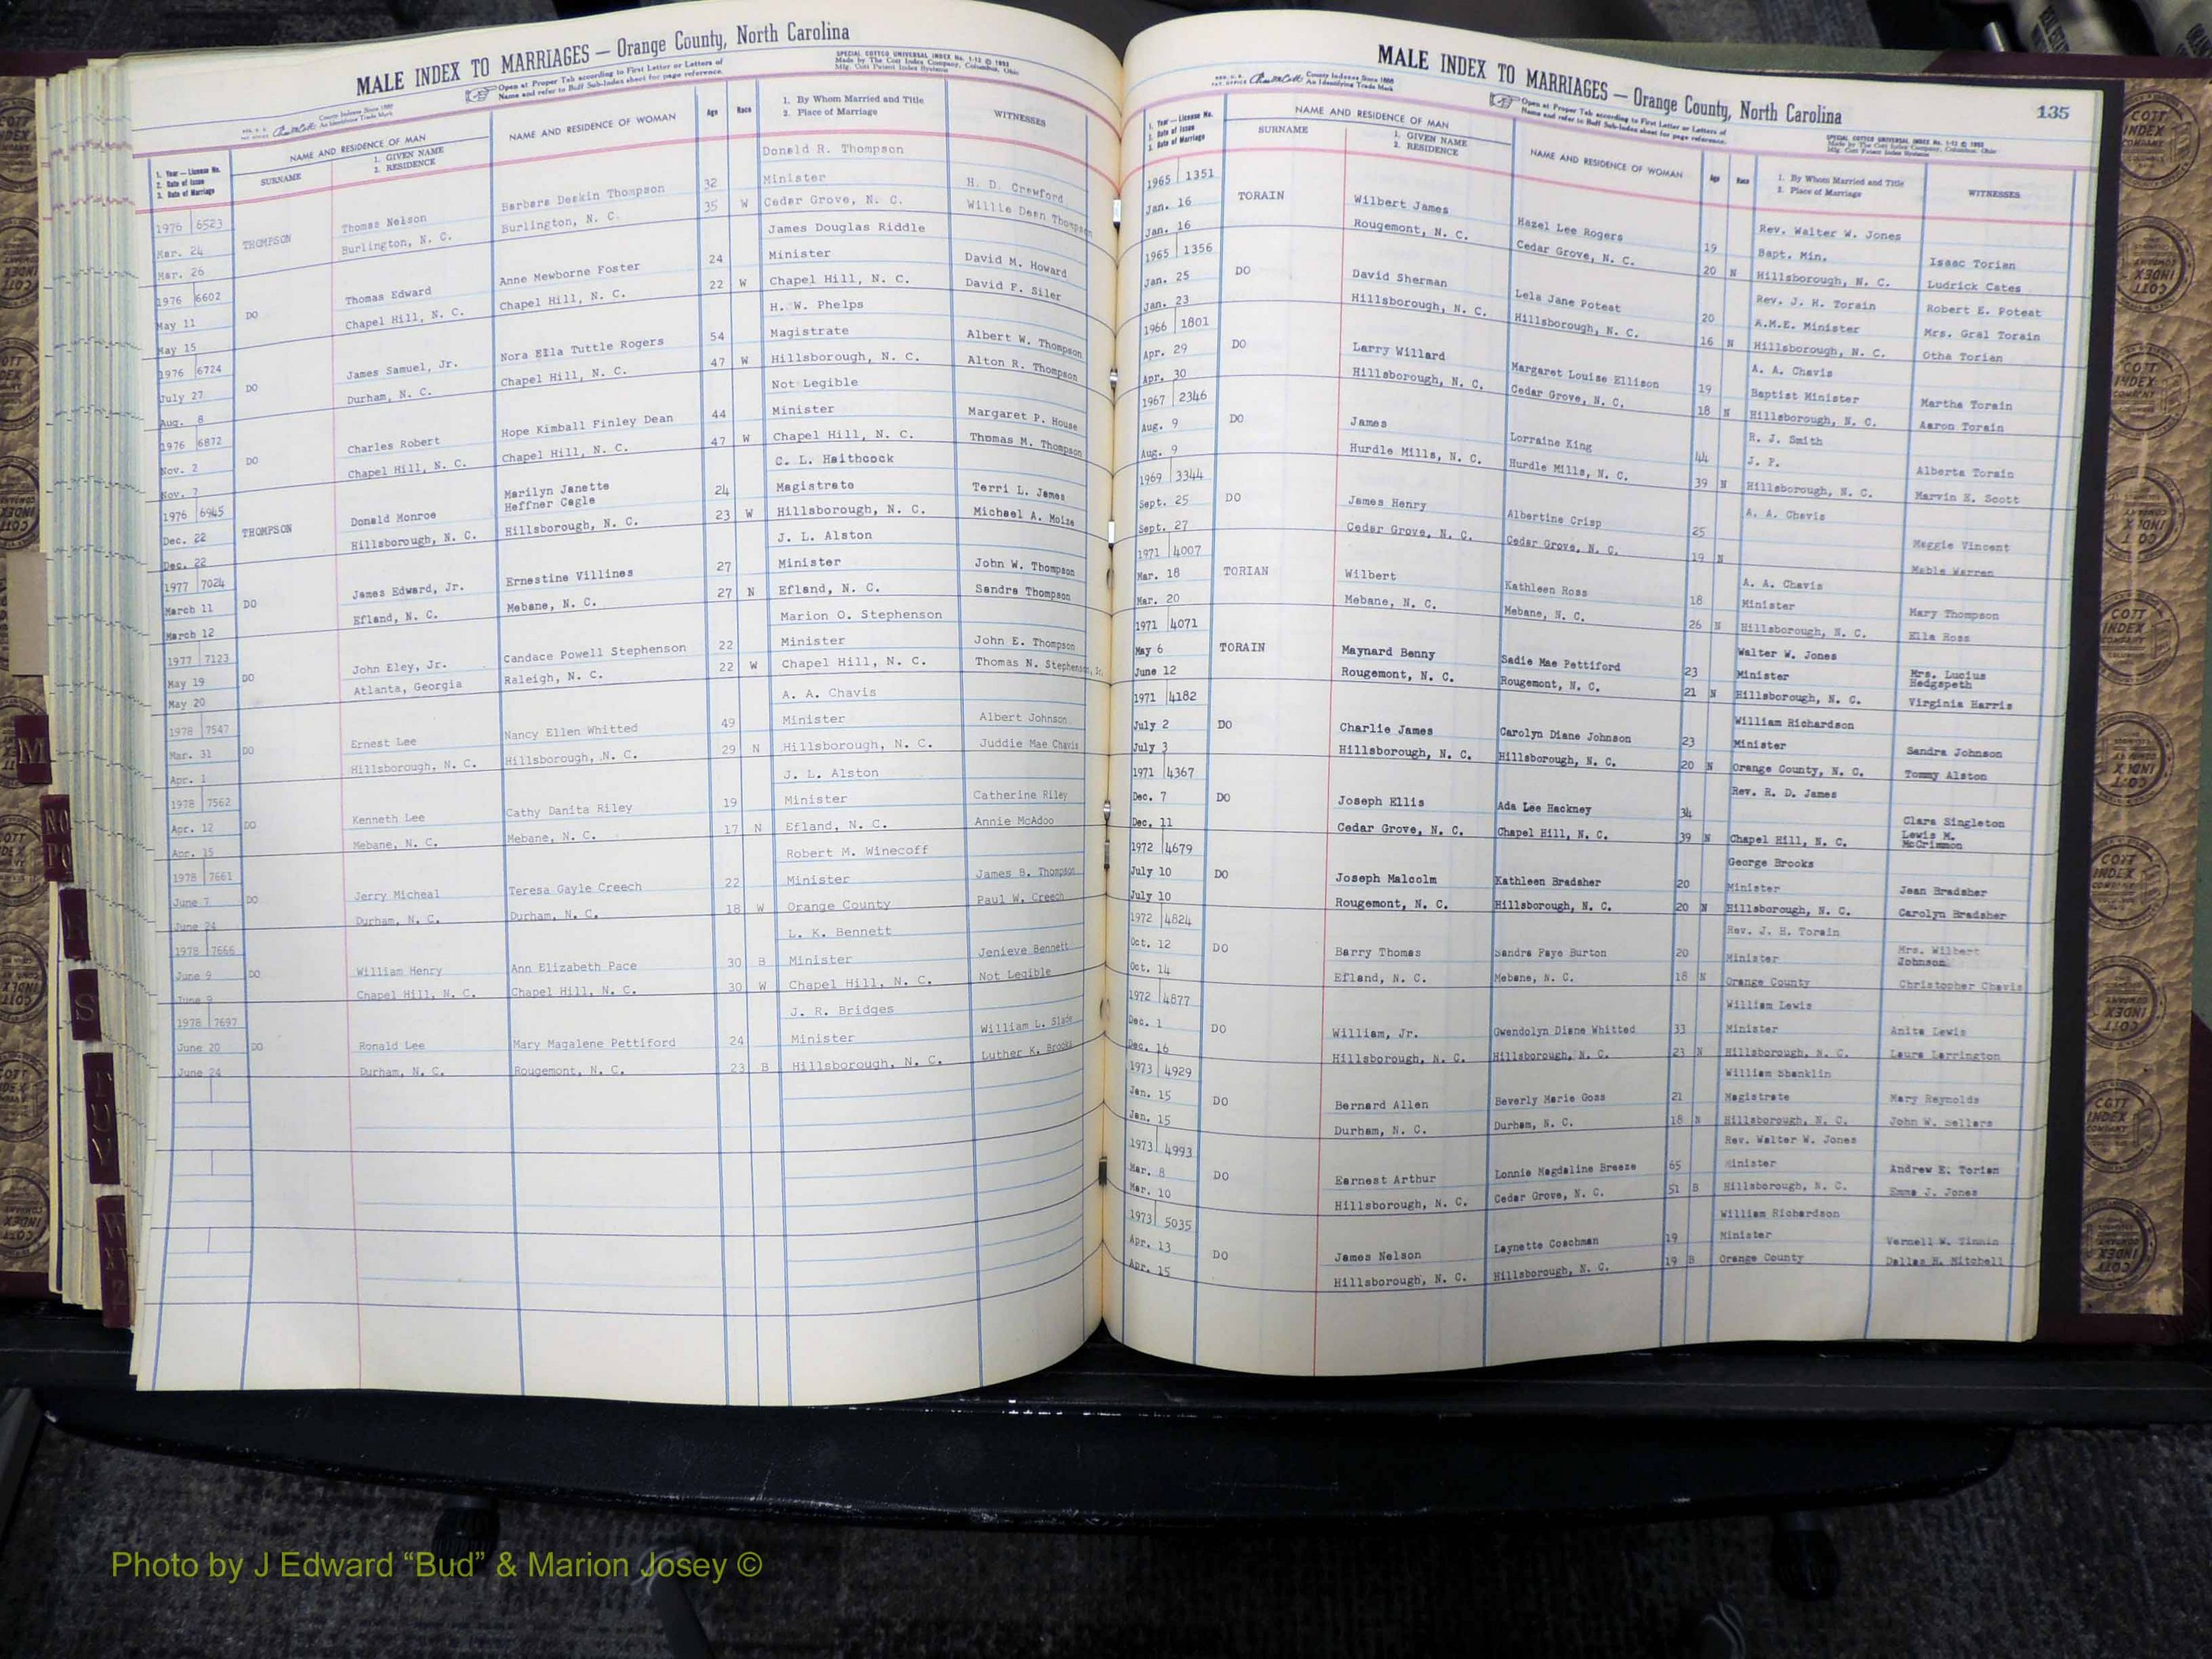 MALE INDEX TO MARRIAGES — Orange County, North Carolina
Open at Proper Tab according to First Letter or Letters of
Name and refer to Buff Sub-Index sheet for page reference.
SPECIAL COTTCO UNIVERSAL INDEX No. 1-12 © 1953
Made by The Cott Index Company, Columbus, Ohio
Mfg. Cott Patent Index Systems
County Indexes Since 1888
An Identifying Trade Mark
1. Year — License No.
2. Date of Issue
3. Date of Marriage
NAME AND RESIDENCE OF MAN
SURNAME
1. GIVEN NAME
2. RESIDENCE
NAME AND RESIDENCE OF WOMAN
Age
Race
1. By Whom Married and Title
2. Place of Marriage
WITNESSES
Donald R. Thompson
1976 6523 Thomas Nelson Barbara Deskin Thompson 32 Minister H. D. Crawford
Mar. 24 THOMPSON Burlington, N. C. Burlington, N. C. 35 W Cedar Grove, N. C. Willie Dean Thompson
Mar. 26
James Douglas Riddle
1976 6602 Thomas Edward Anne Mewborne Foster 24 Minister David M. Howard
May 11 DO Chapel Hill, N. C. Chapel Hill, N. C. 22 W Chapel Hill, N. C. David F. Siler
May 15
H. W. Phelps
1976 6724 James Samuel, Jr. Nora Ella Tuttle Rogers 54 Magistrate Albert W. Thompson
July 27 DO Durham, N. C. Chapel Hill, N. C. 47 W Hillsborough, N. C. Alton R. Thompson
Aug. 8
Not Legible
1976 6872 Charles Robert Hope Kimball Finley Dean 44 Minister Margaret P. House
Nov. 2 DO Chapel Hill, N. C. Chapel Hill, N. C. 47 W Chapel Hill, N. C. Thomas M. Thompson
Nov. 7
C. L. Haithcock
1976 6945 Donald Monroe Marilyn Janette Heffner Cagle 24 Magistrate Terri L. James
Dec. 22 THOMPSON Hillsborough, N. C. Hillsborough, N. C. 23 W Hillsborough, N. C. Michael A. Moize
Dec. 22
J. L. Alston
1977 7024 James Edward, Jr. Ernestine Villines 27 Minister John W. Thompson
March 11 DO Efland, N. C. Mebane, N. C. 27 N Efland, N. C. Sandra Thompson
March 12
Marion O. Stephenson
1977 7123 John Eley, Jr. Candace Powell Stephenson 22 Minister John E. Thompson
May 19 DO Atlanta, Georgia Raleigh, N. C. 22 W Chapel Hill, N. C. Thomas N. Stephenson, Sr.
May 20
A. A. Chavis
1978 7547 Ernest Lee Nancy Ellen Whitted 49 Minister Albert Johnson
Mar. 31 DO Hillsborough, N. C. Hillsborough, N. C. 29 N Hillsborough, N. C. Juddie Mae Chavis
Apr. 1
J. L. Alston
1978 7562 Kenneth Lee Cathy Danita Riley 19 Minister Catherine Riley
Apr. 12 DO Mebane, N. C. Mebane, N. C. 17 N Efland, N. C. Annie McAdoo
Apr. 15
Robert M. Winecoff
1978 7661 Jerry Micheal Teresa Gayle Creech 22 Minister James B. Thompson
June 7 DO Durham, N. C. Durham, N. C. 18 W Orange County Paul W. Creech
June 24
L. K. Bennett
1978 7666 William Henry Ann Elizabeth Pace 30 B Minister Jenieve Bennett
June 9 DO Chapel Hill, N. C. Chapel Hill, N. C. 30 W Chapel Hill, N. C. Not Legible
June 9
J. R. Bridges
1978 7697 Ronald Lee Mary Magalene Pettiford 24 Minister William L. Slade
June 20 DO Durham, N. C. Rougemont, N. C. 23 B Hillsborough, N. C. Luther K. Brooks
June 24
MALE INDEX TO MARRIAGES — Orange County, North Carolina
135
County Indexes Since 1888
An Identifying Trade Mark
Open at Proper Tab according to First Letter or Letters of
Name and refer to Buff Sub-Index sheet for page reference.
SPECIAL COTTCO UNIVERSAL INDEX No. 1-12 © 1953
Made by The Cott Index Company, Columbus, Ohio
Mfg. Cott Patent Index Systems
1. Year — License No.
2. Date of Issue
3. Date of Marriage
NAME AND RESIDENCE OF MAN
SURNAME
1. GIVEN NAME
2. RESIDENCE
NAME AND RESIDENCE OF WOMAN
Age
Race
1. By Whom Married and Title
2. Place of Marriage
WITNESSES
1965 1351 Rev. Walter W. Jones
Jan. 16 TORAIN Wilbert James Hazel Lee Rogers 19 Bapt. Min. Isaac Torian
Jan. 16 Rougemont, N. C. Cedar Grove, N. C. 20 N Hillsborough, N. C. Ludrick Cates
1965 1356 Rev. J. H. Torain Robert E. Poteat
Jan. 25 DO David Sherman Lela Jane Poteat 20 A.M.E. Minister Mrs. Gral Torain
Jan. 23 Hillsborough, N. C. Hillsborough, N. C. 16 N Hillsborough, N. C. Otha Torian
1966 1801 A. A. Chavis
Apr. 29 DO Larry Willard Margaret Louise Ellison 19 Baptist Minister Martha Torain
Apr. 30 Hillsborough, N. C. Cedar Grove, N. C. 18 N Hillsborough, N. C. Aaron Torain
1967 2346 R. J. Smith
Aug. 9 DO James Lorraine King 44 J. P. Alberta Torain
Aug. 9 Hurdle Mills, N. C. Hurdle Mills, N. C. 39 N Hillsborough, N. C. Marvin E. Scott
1969 3344 A. A. Chavis
Sept. 25 DO James Henry Albertine Crisp 25 Maggie Vincent
Sept. 27 Cedar Grove, N. C. Cedar Grove, N. C. 19 N Mable Warren
1971 4007 A. A. Chavis
Mar. 18 TORIAN Wilbert Kathleen Ross 18 Minister Mary Thompson
Mar. 20 Mebane, N. C. Mebane, N. C. 26 N Hillsborough, N. C. Ella Ross
1971 4071 Walter W. Jones
May 6 TORAIN Maynard Benny Sadie Mae Pettiford 23 Minister Mrs. Lucius Hedgspeth
June 12 Rougemont, N. C. Rougemont, N. C. 21 N Hillsborough, N. C. Virginia Harris
1971 4182 William Richardson
July 2 DO Charlie James Carolyn Diane Johnson 23 Minister Sandra Johnson
July 3 Hillsborough, N. C. Hillsborough, N. C. 20 N Orange County, N. C. Tommy Alston
1971 4367 Rev. R. D. James
Dec. 7 DO Joseph Ellis Ada Lee Hackney 34 Clara Singleton
Dec. 11 Cedar Grove, N. C. Chapel Hill, N. C. 39 N Chapel Hill, N. C. Lewis M. McCrimmon
1972 4679 George Brooks
July 10 DO Joseph Malcolm Kathleen Bradsher 20 Minister Jean Bradsher
July 10 Rougemont, N. C. Hillsborough, N. C. 20 N Hillsborough, N. C. Carolyn Bradsher
1972 4824 Rev. J. H. Torain
Oct. 12 DO Barry Thomas Sandra Faye Burton 20 Minister Mrs. Wilbert Johnson
Oct. 14 Efland, N. C. Mebane, N. C. 18 N Orange County Christopher Chavis
1972 4877 William Lewis
Dec. 1 DO William, Jr. Gwendolyn Diane Whitted 33 Minister Anita Lewis
Dec. 16 Hillsborough, N. C. Hillsborough, N. C. 23 N Hillsborough, N. C. Laura Larrington
1973 4929 William Shanklin
Jan. 15 DO Bernard Allen Beverly Marie Goss 21 Magistrate Mary Reynolds
Jan. 15 Durham, N. C. Durham, N. C. 18 N Hillsborough, N. C. John W. Sellars
1973 4993 Rev. Walter W. Jones
Mar. 8 DO Earnest Arthur Lonnie Magdaline Breeze 65 Minister Andrew E. Torian
Mar. 10 Hillsborough, N. C. Cedar Grove, N. C. 51 B Hillsborough, N. C. Emma J. Jones
1973 5035 William Richardson
Apr. 13 DO James Nelson Laynette Coachman 19 Minister Vernell W. Tinnin
Apr. 15 Hillsborough, N. C. Hillsborough, N. C. 19 B Orange County Dallas H. Mitchell
M
NO
PQ
R
S
T
UV
W
XY
Z
COTT
INDEX
COMPANY
Photo by J Edward “Bud” & Marion Josey ©